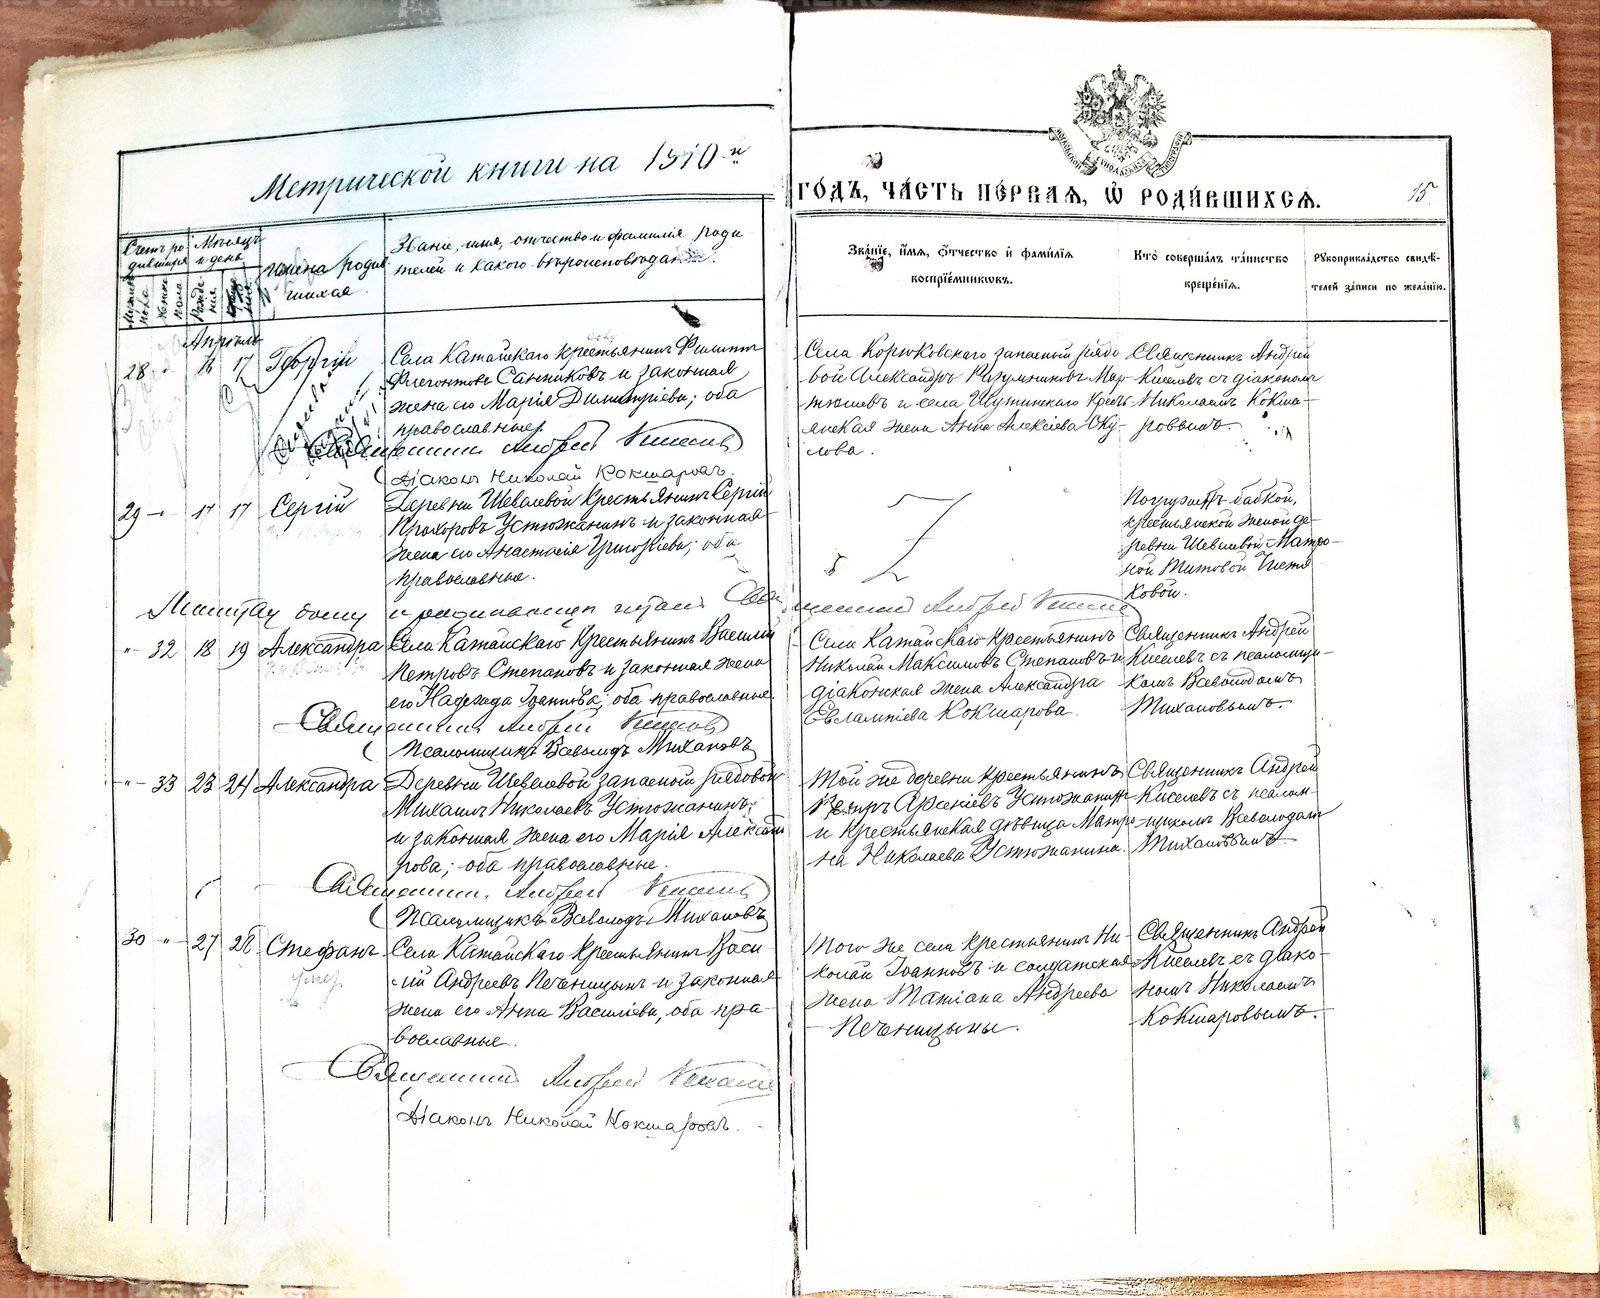 Метрической книги на 1910-й
годъ, часть первая, ѽ родившихся.
15.
Счетъ родившихся
Мѣсяцъ и день
Имена родившихся.
Званіе, имя, отчество и фамилія родителей и какого вѣроисповѣданія.
Званіе, имя, отчество и фамилія
воспріемниковъ.
Кто совершалъ таинство
крещенія.
Рукоприкладство свидѣ-
телей записи по желанію.
Апрѣль
28 16 17 Георгій
Села Катайскаго крестьянинъ Филиппъ
Флегонтовъ Санниковъ и законная
жена его Марія Димитріева; оба
православные.
Священникъ Андрей Киселевъ
Діаконъ Николай Кокшаровъ.
Села Корюковскаго запасный рядо
вой Александръ Мар-
тюшевъ и села Шутинскаго Кресть-
янская жена Анна Алексіева Ску-
лова.
Священникъ Андрей
Киселевъ съ діакономъ
Николаемъ Кокша-
ровымъ.
29 -"- 17 17 Сергій
Деревни Шеваловой крестьянинъ Сергій
Прохоровъ Устюжанинъ и законная
жена его Анастасія Григоріева; оба
православные.
Z
Погружалъ бабкой,
крестьянской женой де-
ревни Шевалевой Матро-
ной Титовой Чистя
ковой.
Священникъ Андрей Киселевъ
-"- 32 18 19 Александра
Села Катайскаго Крестьянинъ Василій
Петровъ Степановъ и законная жена
его Надежда Іоаннова; оба православные.
Священникъ Андрей Киселевъ
Псаломщикъ Всеволодъ Тихановъ
Села Катайскаго Крестьянинъ
Николай Максимовъ Степановъ и
діаконская жена Александра
Евлампіева Кокшарова.
Священникъ Андрей
Киселевъ съ псаломщи-
комъ Всеволодомъ
Тихановымъ.
-"- 33 23 24 Александра
Деревни Шеваловой запасный рядовой
Михаилъ Николаевъ Устюжанинъ
и законная жена его Марія Алексан
рова; оба православные.
Священникъ Андрей Киселевъ
Псаломщикъ Всеволодъ Тихановъ
Той же деревни Крестьянинъ
Петръ Арсеніевъ Устюжанинъ
и Крестьянская дѣвица Матро-
на Николаева Устюжанина.
Священникъ Андрей
Киселевъ съ псалом-
щикомъ Всеволодомъ
Тихановымъ
30 -"- 27 28 Стефанъ
Села Катайскаго Крестьянинъ Васи
лій Андреевъ Печеницынъ и законная
жена его Анна Василіева, оба пра-
вославные.
Священникъ Андрей Киселевъ
Діаконъ Николай Кокшаровъ.
Того же села крестьянинъ Ни-
колай Іоанновъ и солдатская
жена Татіана Андреева
Печеницыны.
Священникъ Андрей
Киселевъ съ діако-
номъ Николаемъ
Кокшаровымъ.